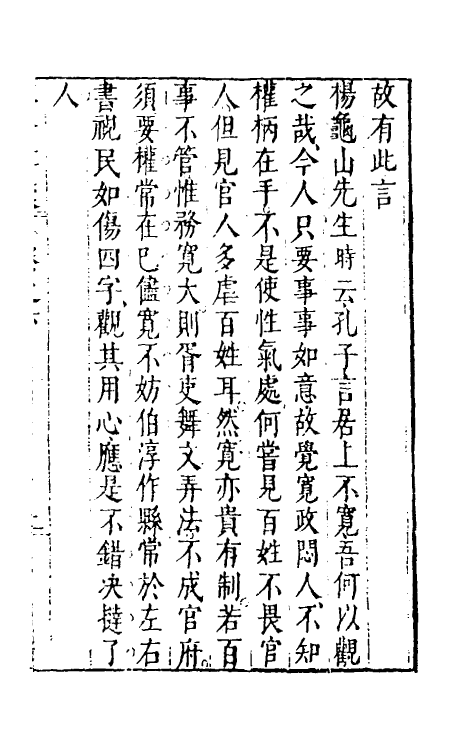 故有此言
楊龜山先生時云孔子言居上不寬吾何以觀
之哉今人只要事事如意故覺寬政悶人不知
權柄在手不是使性氣處何嘗見百姓不畏官
人但見官人多虐百姓耳然寬亦貴有制若百
事不管惟務寬大則胥吏舞文弄法不成官府
須要權常在已儘寬不妨伯淳作縣常於左右
書視民如傷四字觀其用心應是不錯决撻了
人